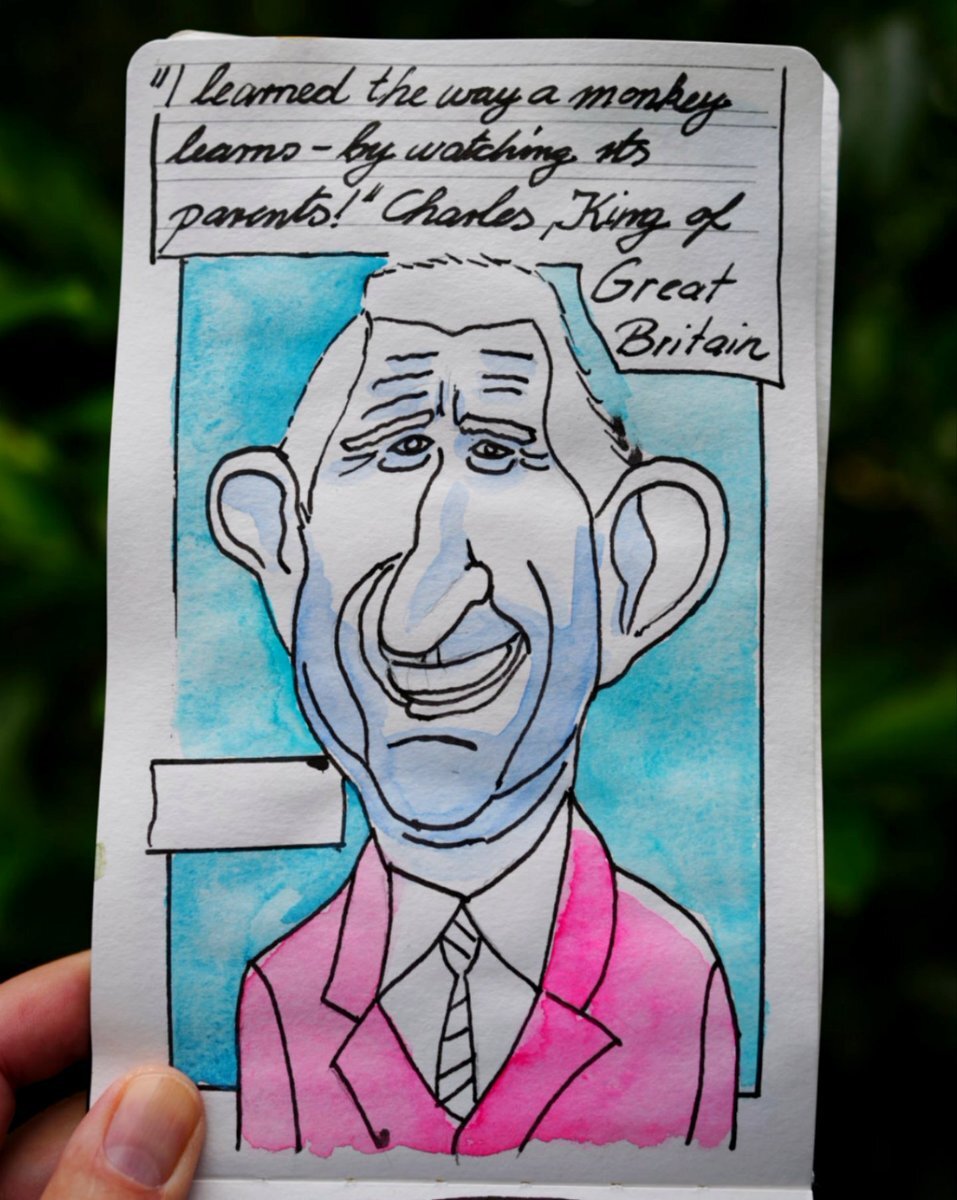 "I learned the way a monkey
learns - by watching its
parents!" Charles, King of
Great
Britain